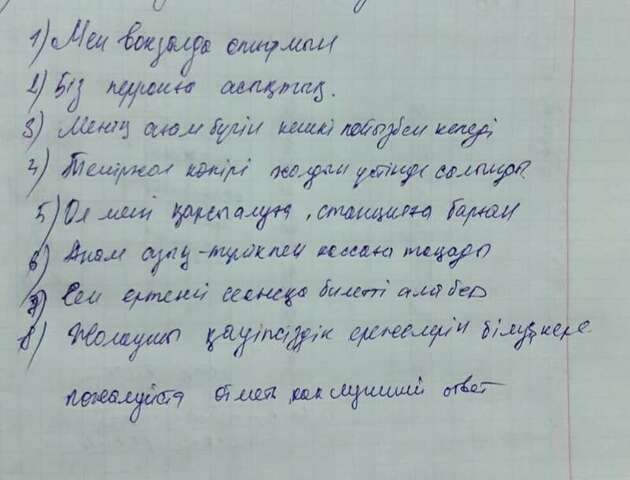 1) Мен вокзалда отырмын
2) Біз перронға асықтық.
3) Менің ағам бүгін кешкі пойызбен келеді
4) Теміржол көпірі жолдың үстінде салынды
5) Ол мені қарсы алуға, станцияға барған
6) Анам азық-түлікпен кассаға тоқады
7) Сен ертеңгі сеансқа билетті
8) Жолаушы қауіпсіздік ережелерін білу керек
пожалуйста отметь как лучший ответ